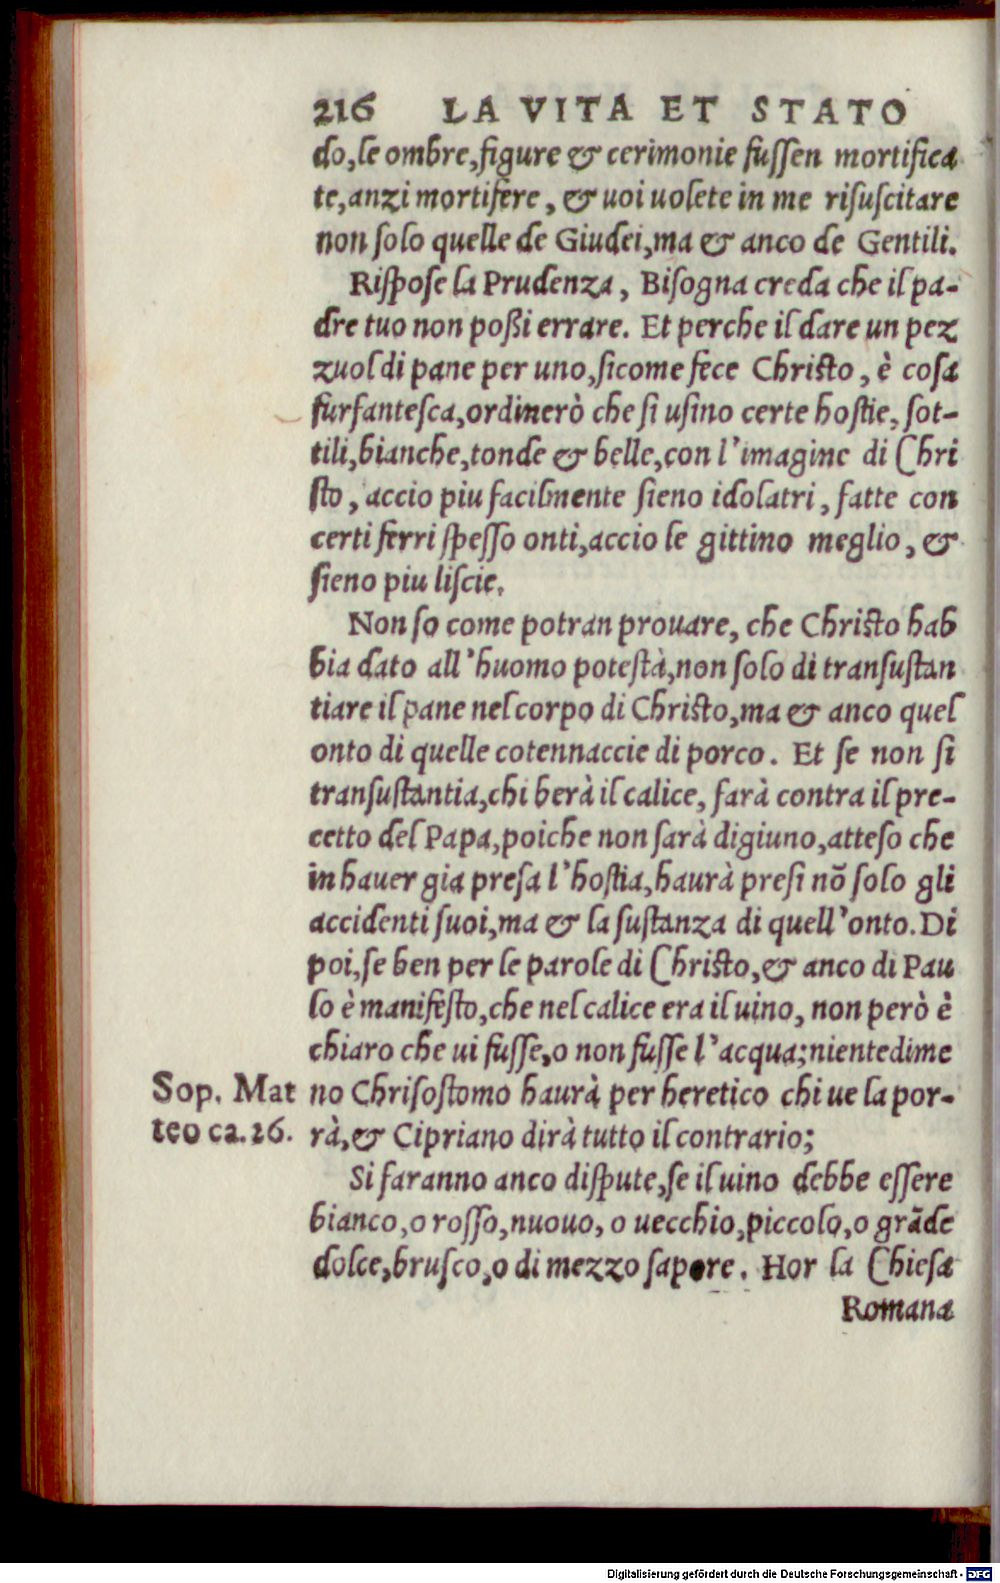 216 LA VITA ET STATO
do, le ombre, figure & cerimonie fussen mortifica
te, anzi mortifere, & uoi uolete in me risuscitare
non solo quelle de Giudei, ma & anco de Gentili.
Rispose la Prudenza, Bisogna creda che il pa-
dre tuo non poßi errare. Et perche il dare un pez
zuol di pane per uno, sicome fece Christo, è cosa
furfantesca, ordinerò che si usino certe hostie, sot-
tili, bianche, tonde & belle, con l'imagine di Chri
sto, accio piu facilmente sieno idolatri, fatte con
certi ferri spesso onti, accio le gittino meglio, &
sieno piu liscie.
Non so come potran prouare, che Christo hab
bia dato all'huomo potestà, non solo di transustan
tiare il pane nel corpo di Christo, ma & anco quel
onto di quelle cotennaccie di porco. Et se non si
transustantia, chi berà il calice, farà contra il pre-
cetto del Papa, poiche non sarà digiuno, atteso che
in hauer gia presa l'hostia, haurà presi nõ solo gli
accidenti suoi, ma & la sustanza di quell'onto. Di
poi, se ben per le parole di Christo, & anco di Pau
lo è manifesto, che nel calice era il uino, non però è
chiaro che ui fusse, o non fusse l'acqua; nientedime
Sop. Mat no Chrisostomo haurà per heretico chi ue la por-
teo ca. 26. rà, & Cipriano dirà tutto il contrario;
Si faranno anco dispute, se il uino debbe essere
bianco, o rosso, nuouo, o uecchio, piccolo, o grãde
dolce, brusco, o di mezzo sapore. Hor la Chiesa
Romana
Digitalisierung gefördert durch die Deutsche Forschungsgemeinschaft - DFG